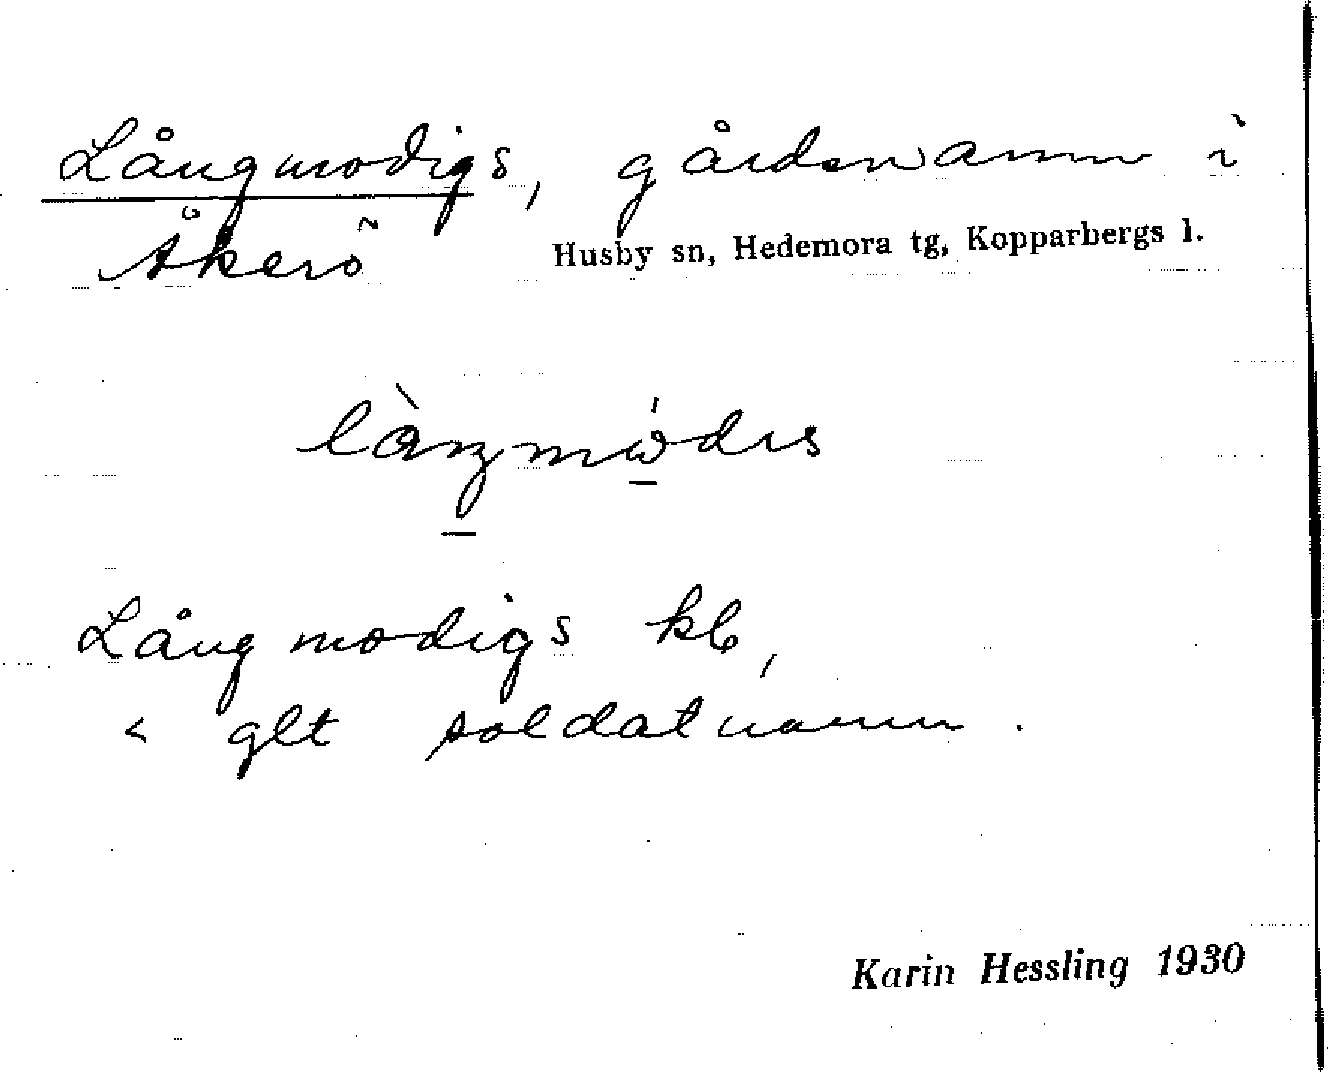 Långmodigs, gårdsnamn i
Åkerö Husby sn, Hedemora tg, Kopparbergs l.
Långmodigs kb,
< glt soldatnamn.
Karin Hessling 1930